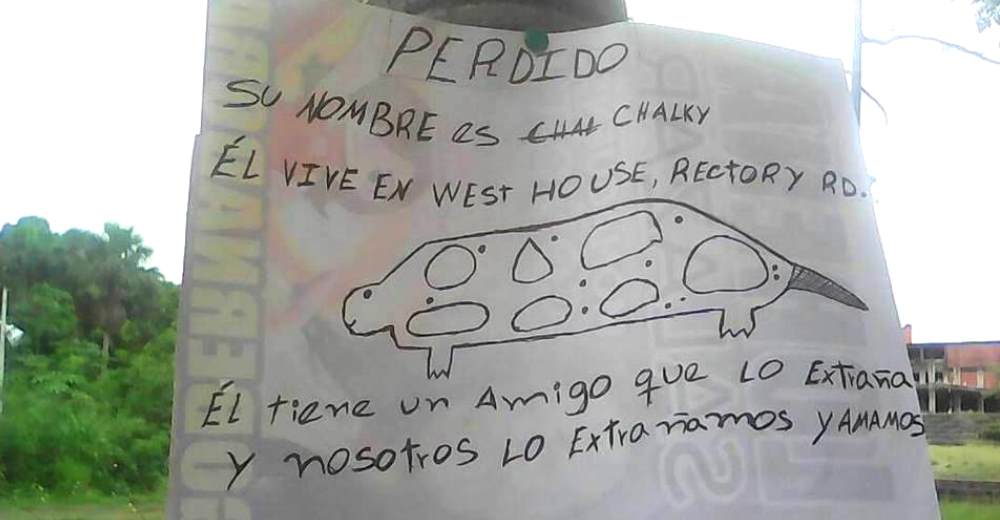 PERDIDO
SU NOMBRE es CHALKY
ÉL VIVE EN WEST HOUSE, RECTORY RD.
ÉL tiene un Amigo que LO Extraña
y nosotros LO Extrañamos y AMAMOS